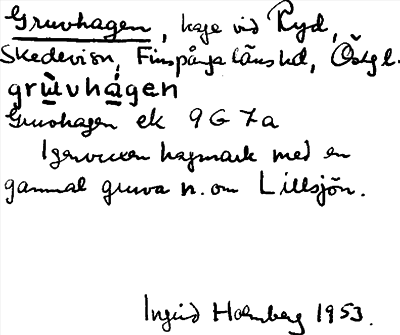 Gruvhagen, hage vid Ryd,
Skedevi sn, Finspånga läns hd, Östgl.
grùvhá̱gen
Gruvhagen ek 9G7a
Igenvuxen hagmark med en
gammal gruva n. om Lillsjön.
Ingrid Holmberg 1953.